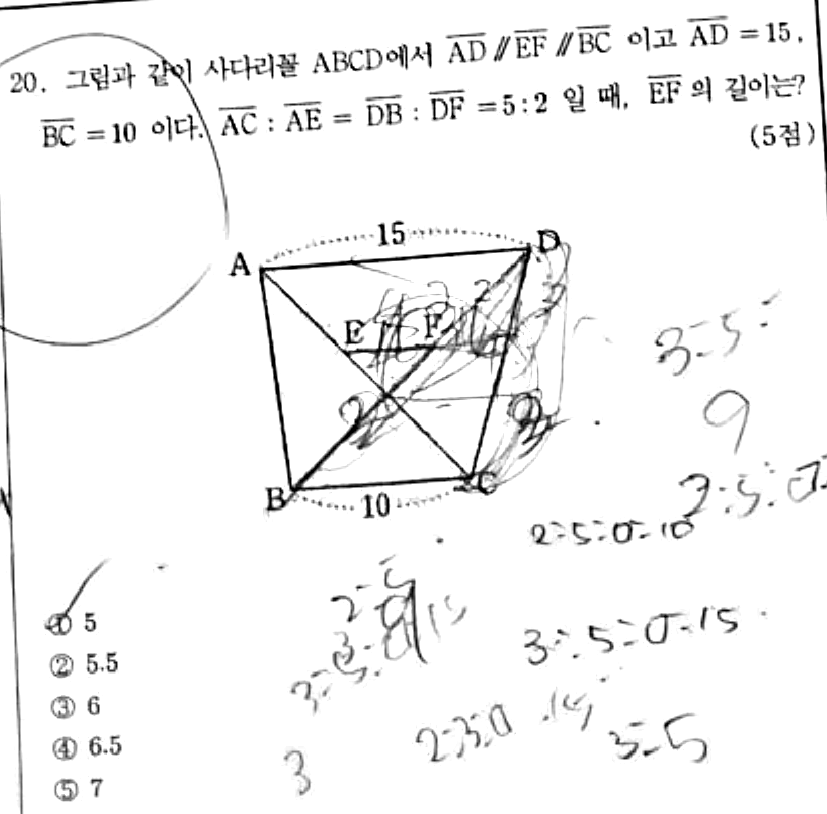 20. 그림과 같이 사다리꼴 ABCD에서 AD // EF // BC 이고 AD = 15,
BC = 10 이다. AC : AE = DB : DF = 5 : 2 일 때, EF 의 길이는?
(5점)
15
A
D
E
F
B
C
10
3:5:
9
2:5:
2:5=0:10
3:5=0:15
2:3:0
3:5
3
① 5
② 5.5
③ 6
④ 6.5
⑤ 7